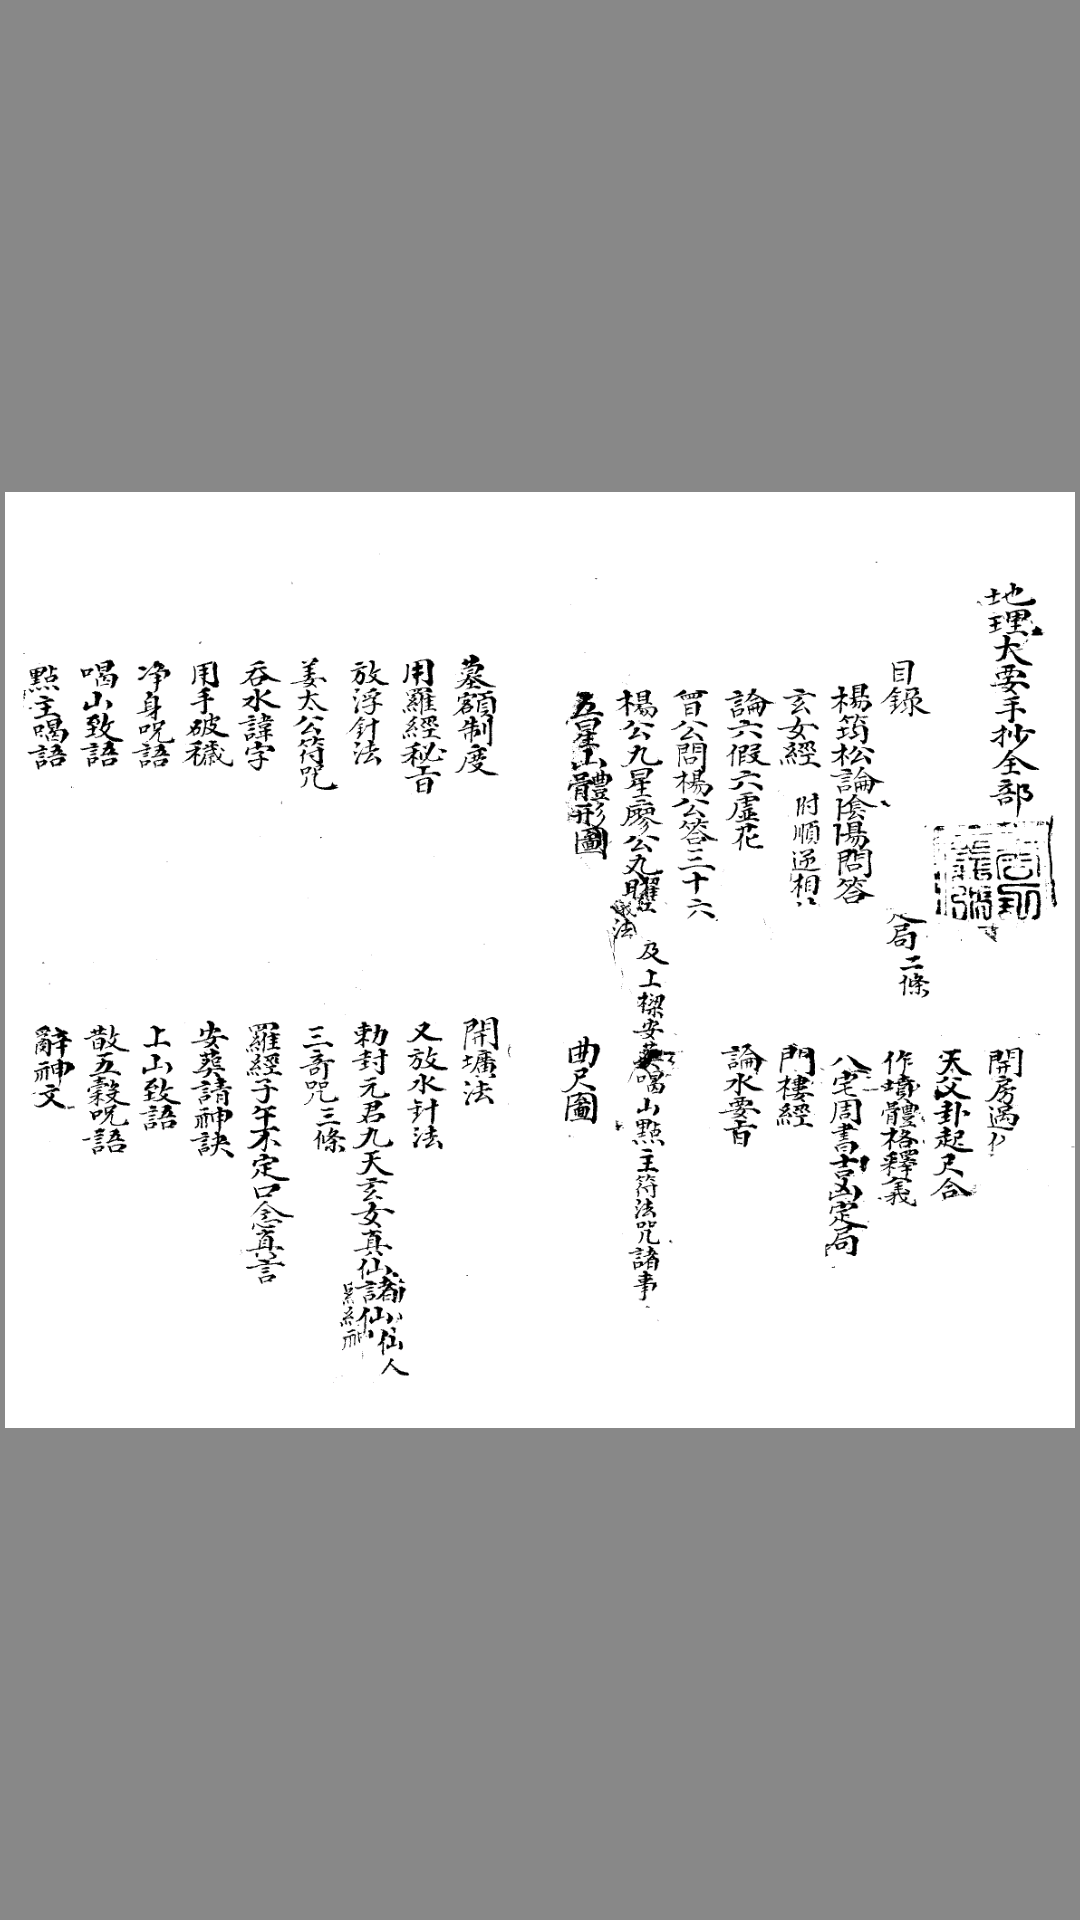 地理大要手抄全部
目錄
局二條
楊筠松論陰陽問答
玄女經 附順逆相
論六假六虛花
曾公問楊公答三十六
楊公九星廖公九曜
法
及上樑安葬喝山點主符法咒諸事
五星山體形圖
開房遇
天父卦起尺合
作墳體格釋義
八宅周書吉凶定局
門樓經
論水要旨
曲尺圖
墓額制度
用羅經秘旨
放浮針法
姜太公符咒
吞水諱字
用手破穢
净身咒語
喝山致語
點主喝語
開壙法
又放水針法
勅封元君九天玄女真仙諸仙仙人
三奇咒三條
羅經子午不定口念真言
安葬請神訣
上山致語
散五穀咒語
辭神文